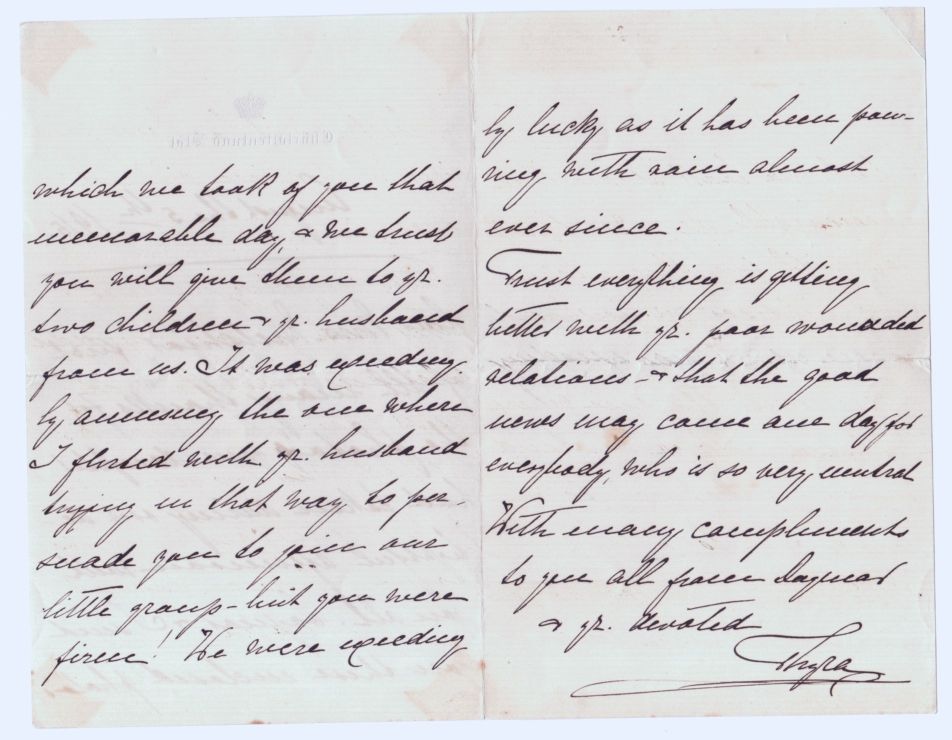 which we took of you that
memorable day, & we trust
you will give them to yr.
two children & yr. husband
from us. It was exceeding-
ly amusing the one where
I flirted with yr. husband
trying in that way to per-
suade you to join our
little group - but you were
firm! We were exceeding
ly lucky as it has been pou-
ring with rain almost
ever since.
Trust everything is getting
better with yr. poor wounded
relations - & that the good
news may come one day for
everybody, who is so very neutral
With many compliments
to you all from Dagmar
& yr. devoted
Thyra